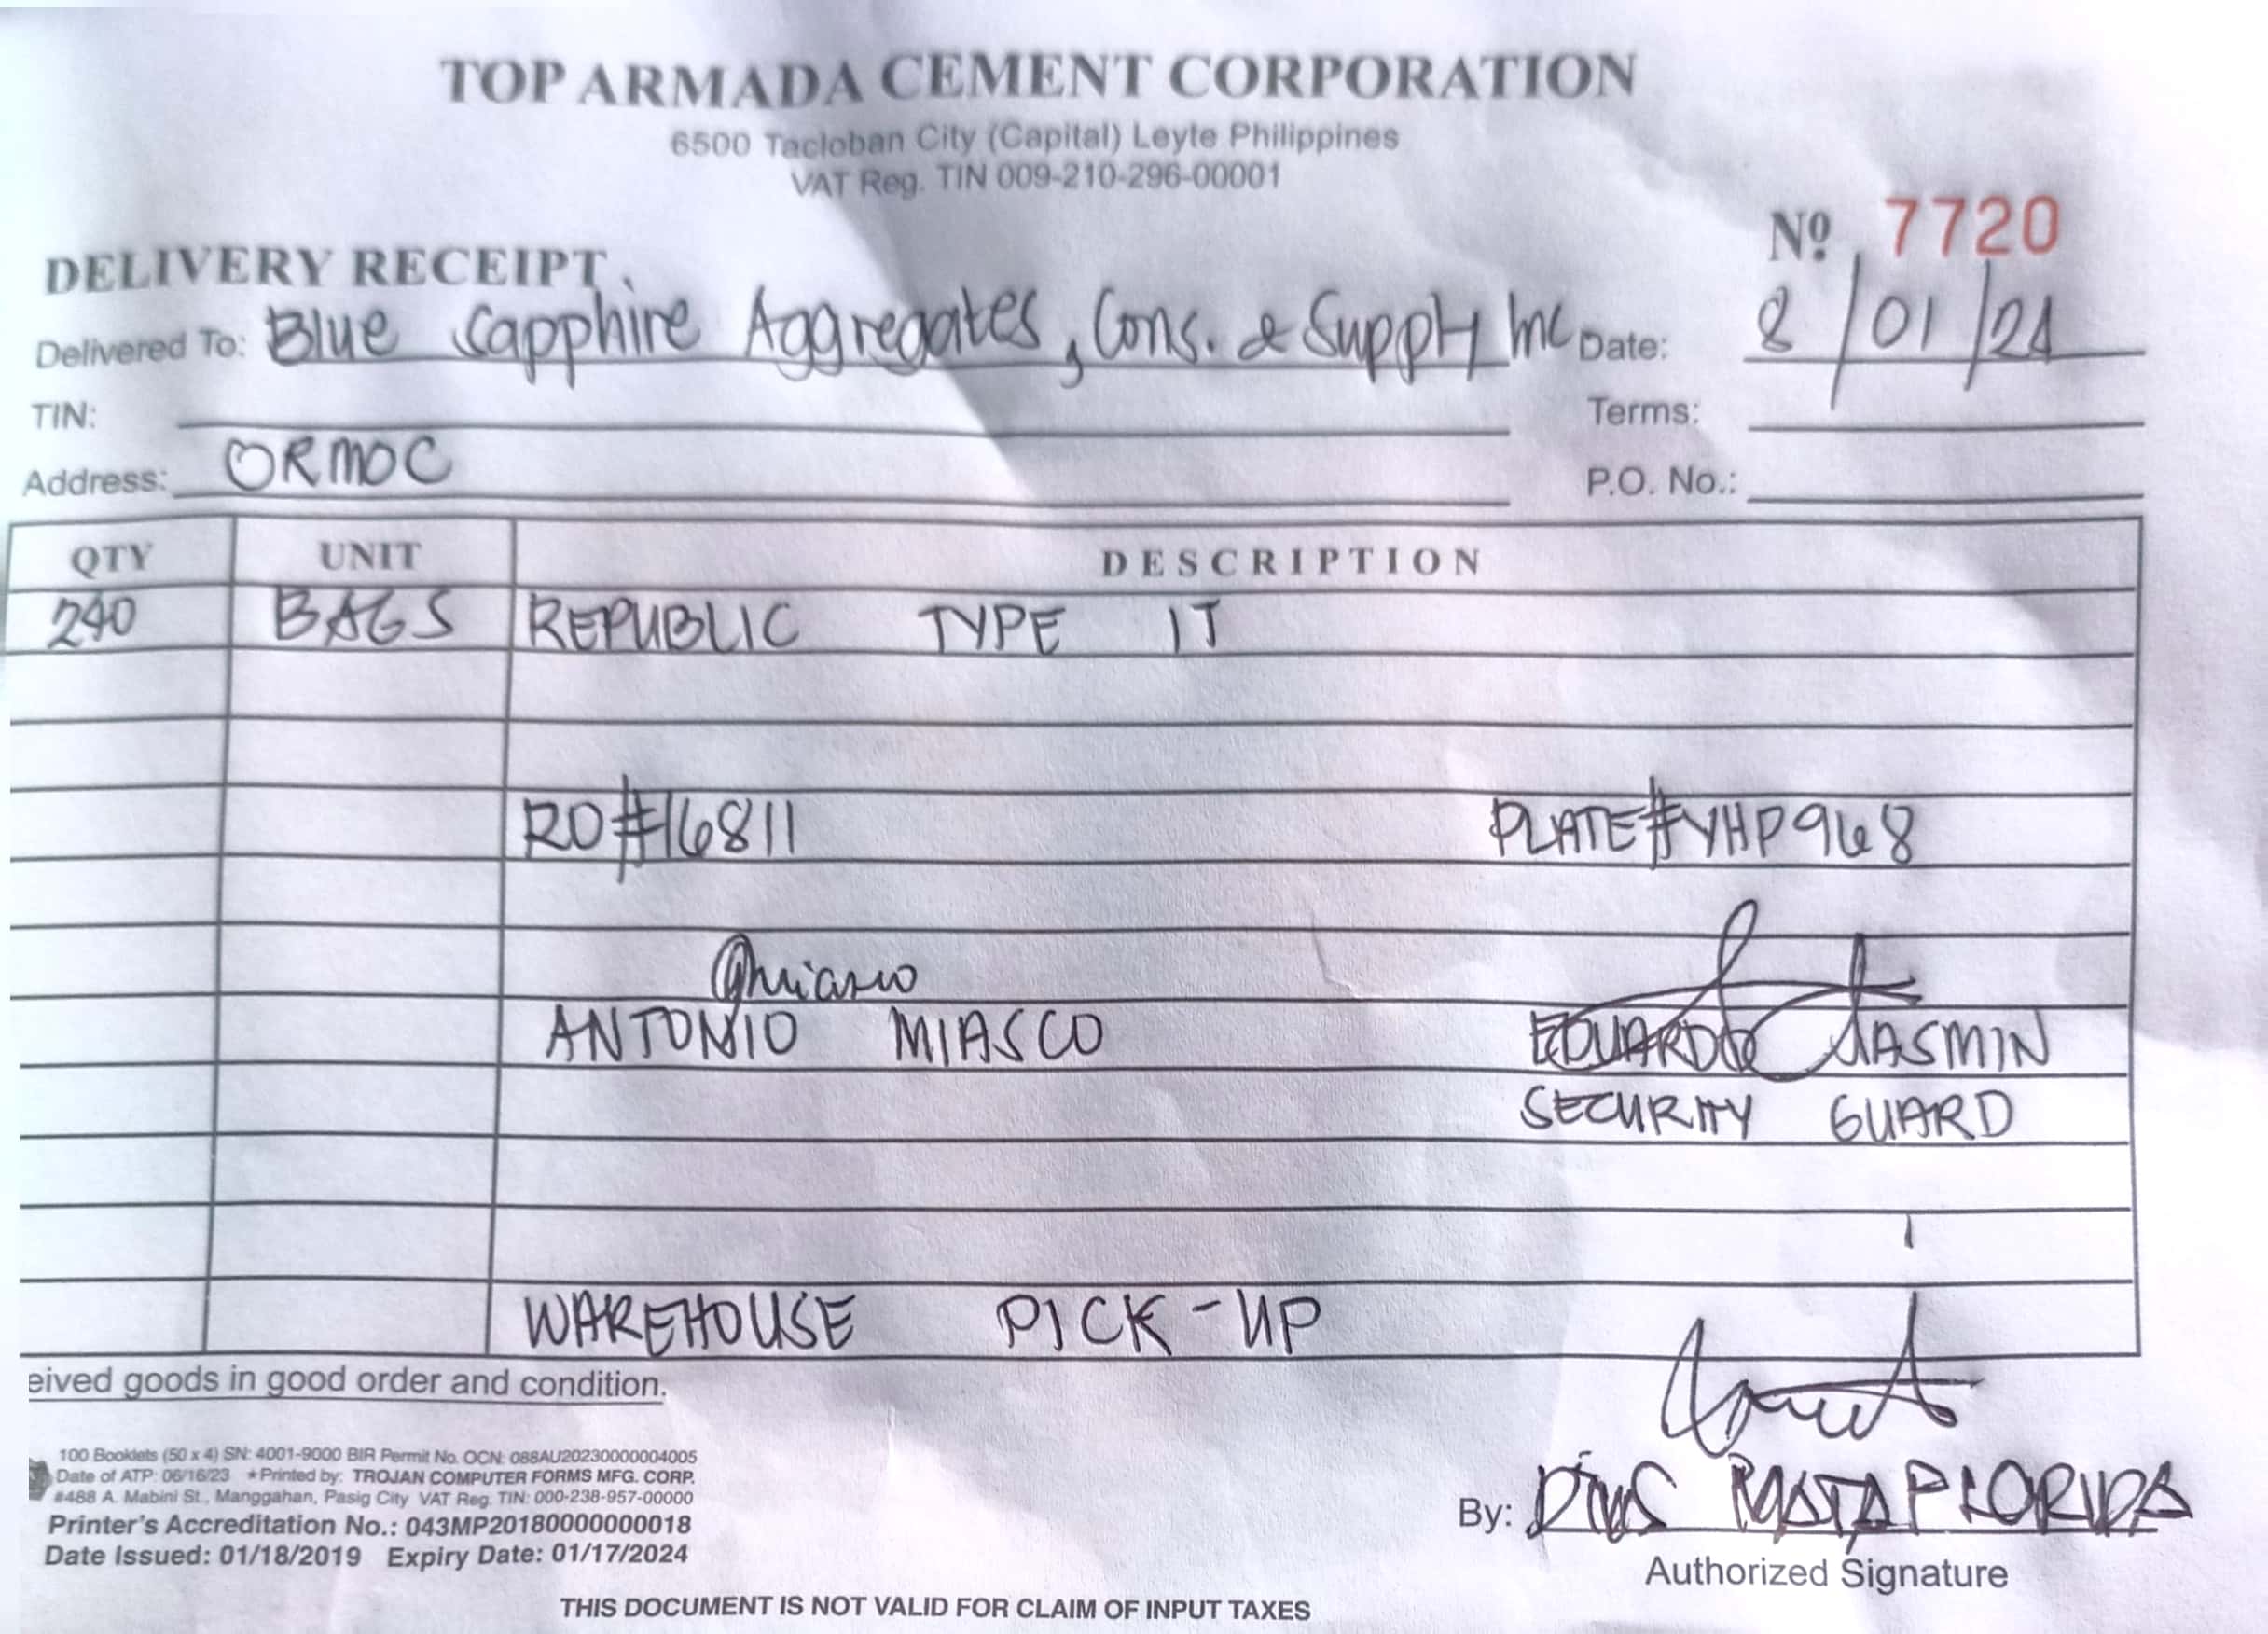 TOP ARMADA CEMENT CORPORATION
6500 Tacloban City (Capital) Leyte Philippines
VAT Reg. TIN 009-210-296-00001
Nº 7720
DELIVERY RECEIPT
Delivered To: Blue Sapphire Aggregates, Cons. & Supply Inc Date: 8/01/24
TIN: Terms:
Address: ORMOC P.O. No.:
QTY UNIT DESCRIPTION
240 BAGS REPUBLIC TYPE 1T
RO#16811 PLATE#YHP968
ANTONIO MIASCO EDUARDO JASMIN
SECURITY GUARD
WAREHOUSE PICK-UP
eived goods in good order and condition.
100 Booklets (50 x 4) SN: 4001-9000 BIR Permit No. OCN: 088AU20230000004005
Date of ATP: 06/16/23 ★Printed by: TROJAN COMPUTER FORMS MFG. CORP.
#488 A. Mabini St., Manggahan, Pasig City VAT Reg. TIN: 000-238-957-00000
Printer's Accreditation No.: 043MP20180000000018
Date Issued: 01/18/2019 Expiry Date: 01/17/2024
By:
Authorized Signature
THIS DOCUMENT IS NOT VALID FOR CLAIM OF INPUT TAXES